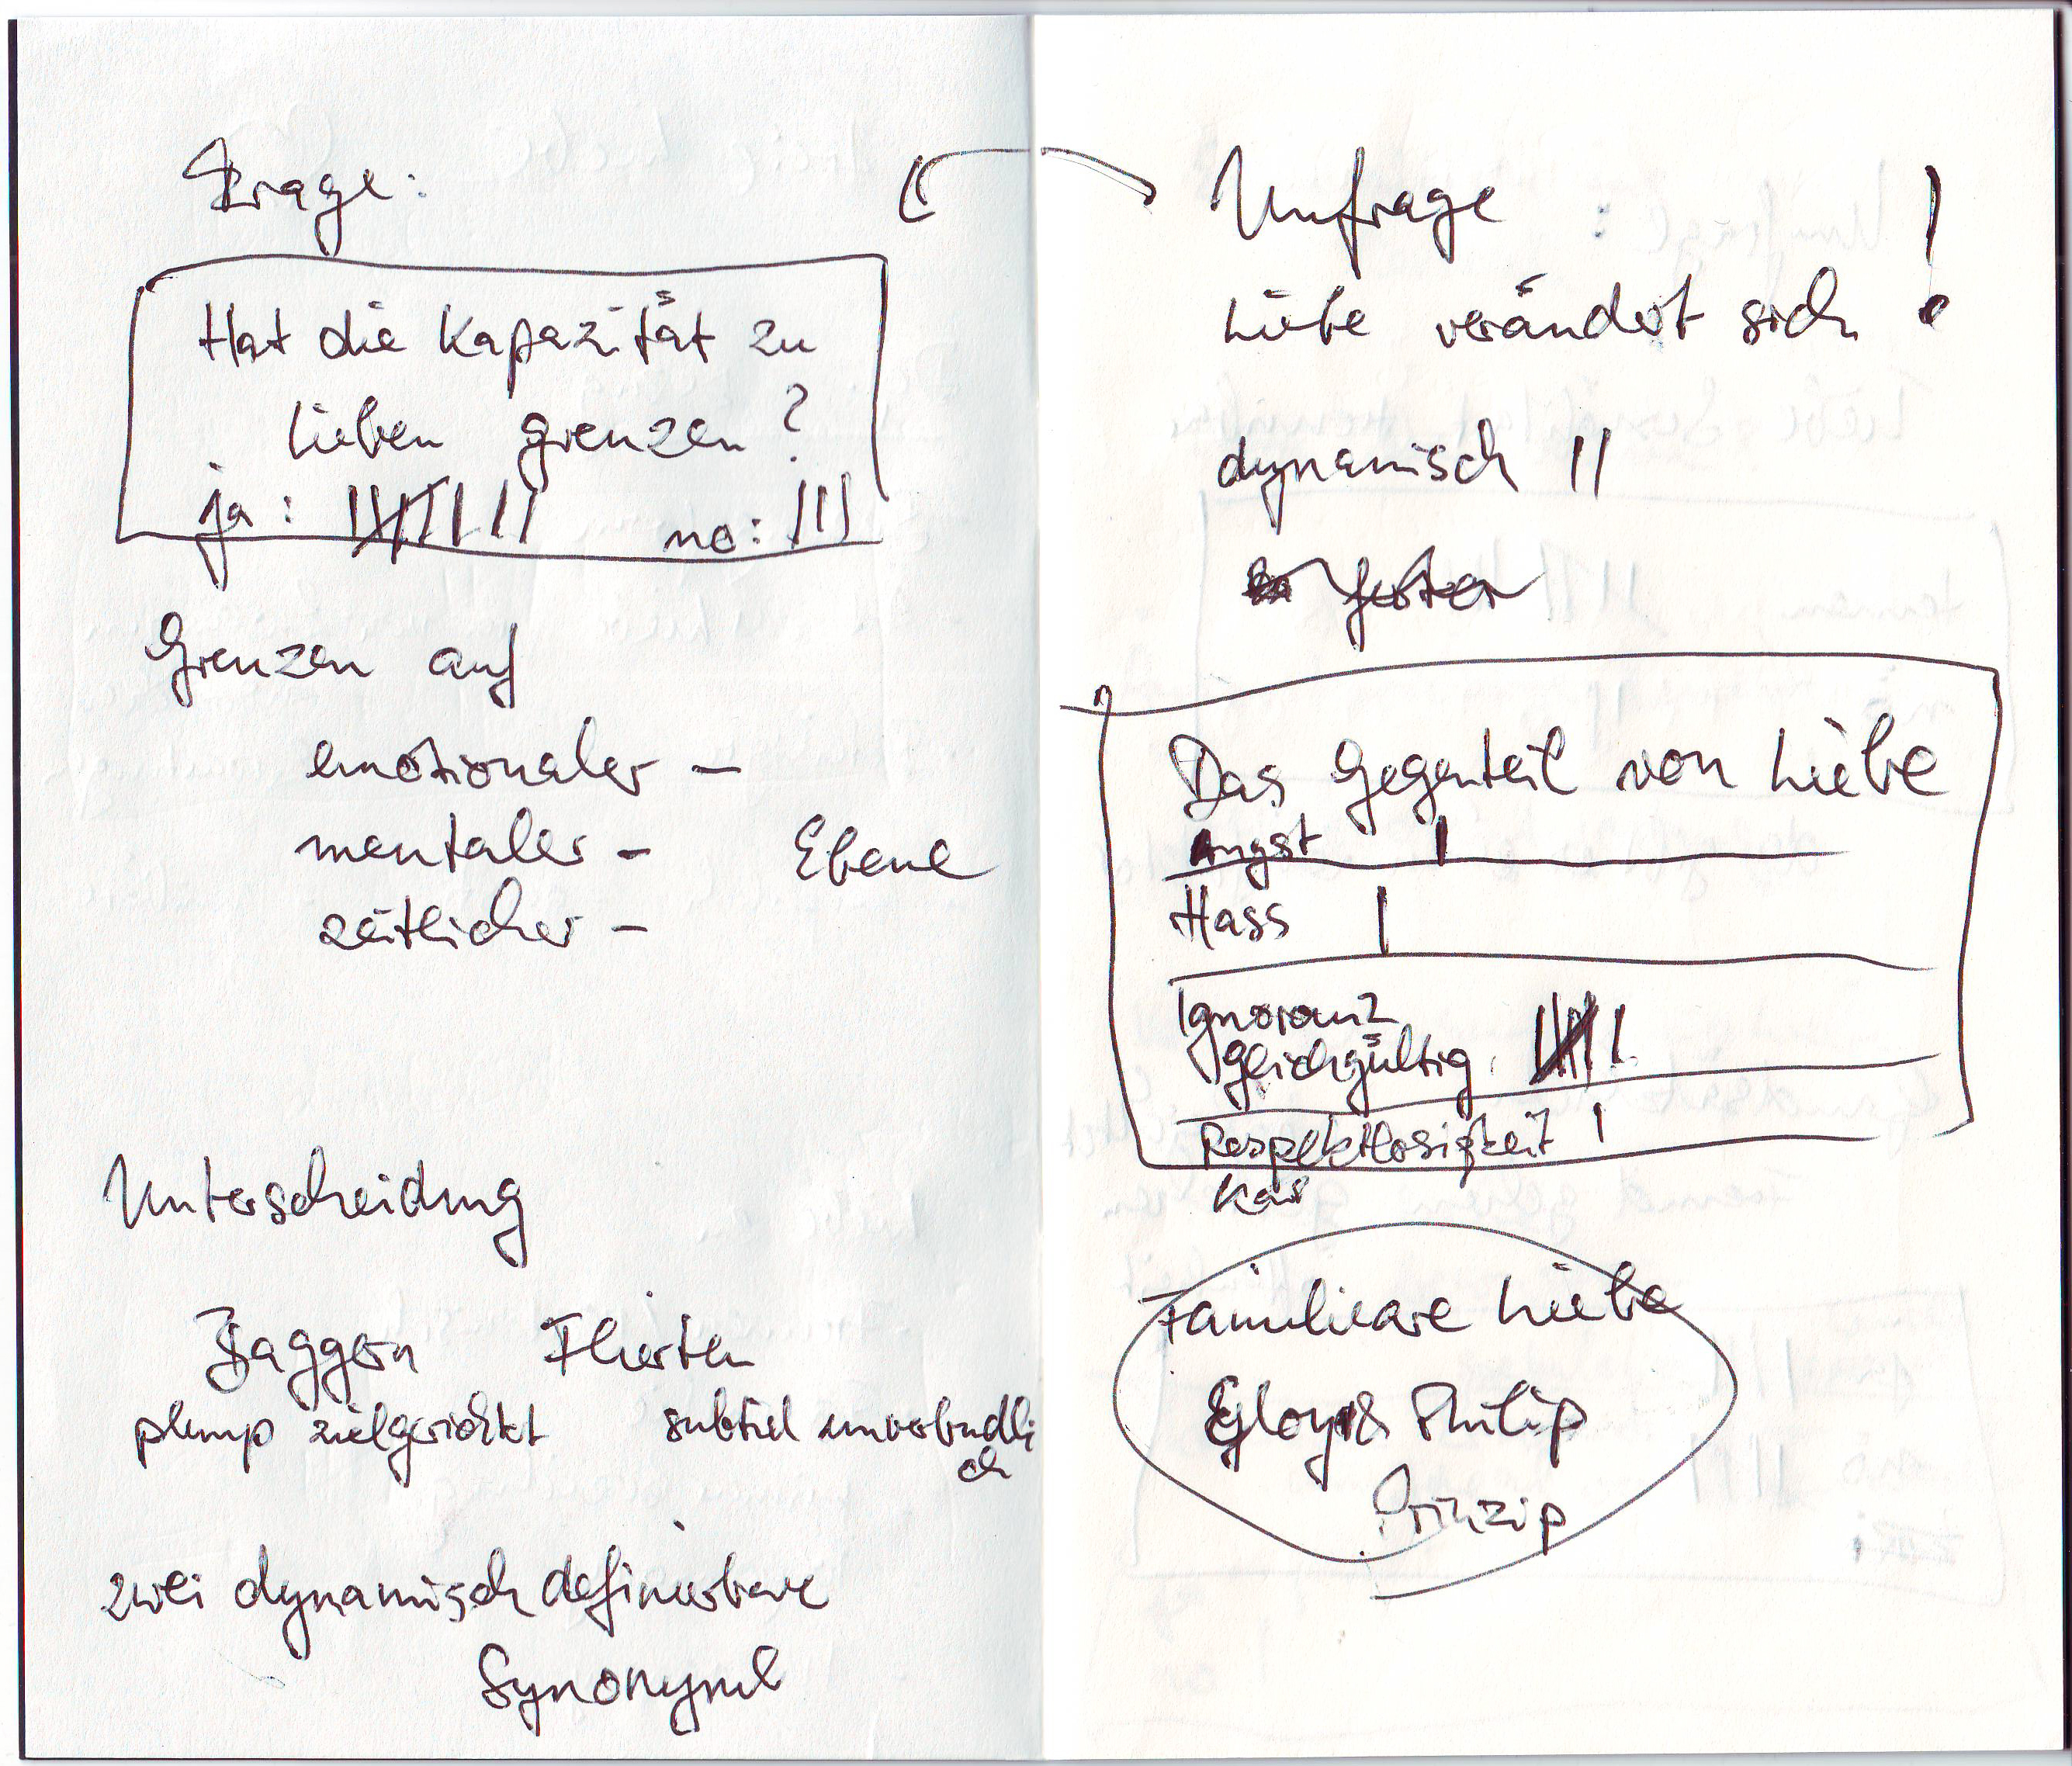 Frage:
Hat die Kapazität zu
Lieben grenzen?
ja: |||| ||| no: |||
Grenzen auf
emotionaler –
mentaler – Ebene
zeitlicher –
Unterscheidung
Baggern Flierten
plump zielgerichtet subtiel unverbindli
ch
zwei dynamisch definierbare
Synonyme
Umfrage !
Liebe verändert sich
dynamisch ||
fester
Das Gegenteil von Liebe
Angst |
Hass |
Ignoranz
gleichgültig |||| |
Respektlosigkeit |
Familieare Liebe
& Philip
Prinzip